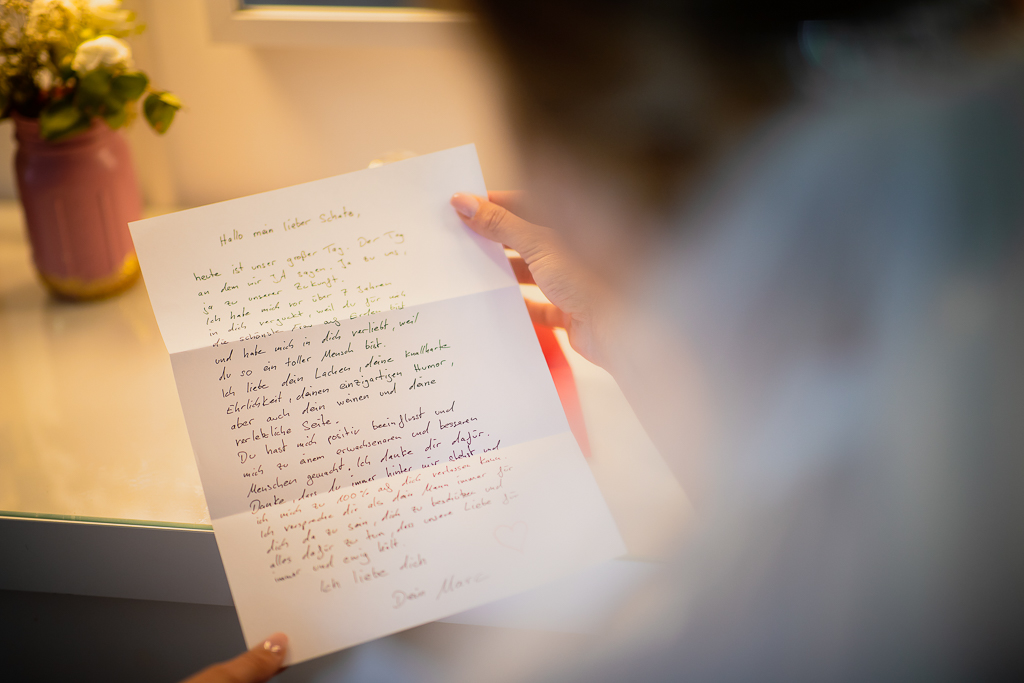 Hallo mein lieber Schatz,
heute ist unser großer Tag. Der Tag
an dem wir Ja sagen. Ja zu uns,
ja zu unserer Zukunft.
Ich habe mich vor über 7 Jahren
in dich verguckt, weil du für mich
die schönste Frau auf Erden bist
und habe mich in dich verliebt, weil
du so ein toller Mensch bist.
Ich liebe dein Lachen, deine knallharte
Ehrlichkeit, deinen einzigartigen Humor,
aber auch dein weinen und deine
verletzliche Seite.
Du hast mich positiv beeinflusst und
mich zu einem erwachseneren und besseren
Menschen gemacht. Ich danke dir dafür.
Danke, dass du immer hinter mir stehst und
ich mich zu 100% auf dich verlassen kann
Ich verspreche dir als dein Mann immer für
dich da zu sein, dich zu beschützen und
alles dafür zu tun, dass unsere Liebe für
immer und ewig hält.
Ich liebe dich
Dein Marc